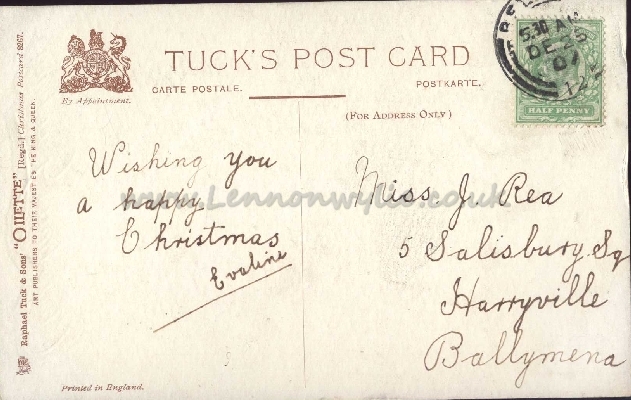 TUCK'S POST CARD
CARTE POSTALE.
POSTKARTE.
By Appointment.
(FOR ADDRESS ONLY)
5.30 AM
DE 25
07
12
HALF PENNY
Wishing you
a happy
Christmas
Evaline
Miss J. Rea
5 Salisbury Sq
Harryville
Ballymena
www.Lennonwylie.co.uk
Raphael Tuck & Sons' "OILETTE" [Regd.] Christmas Postcard 8267.
ART PUBLISHERS TO THEIR MAJESTIES THE KING & QUEEN.
Printed in England.